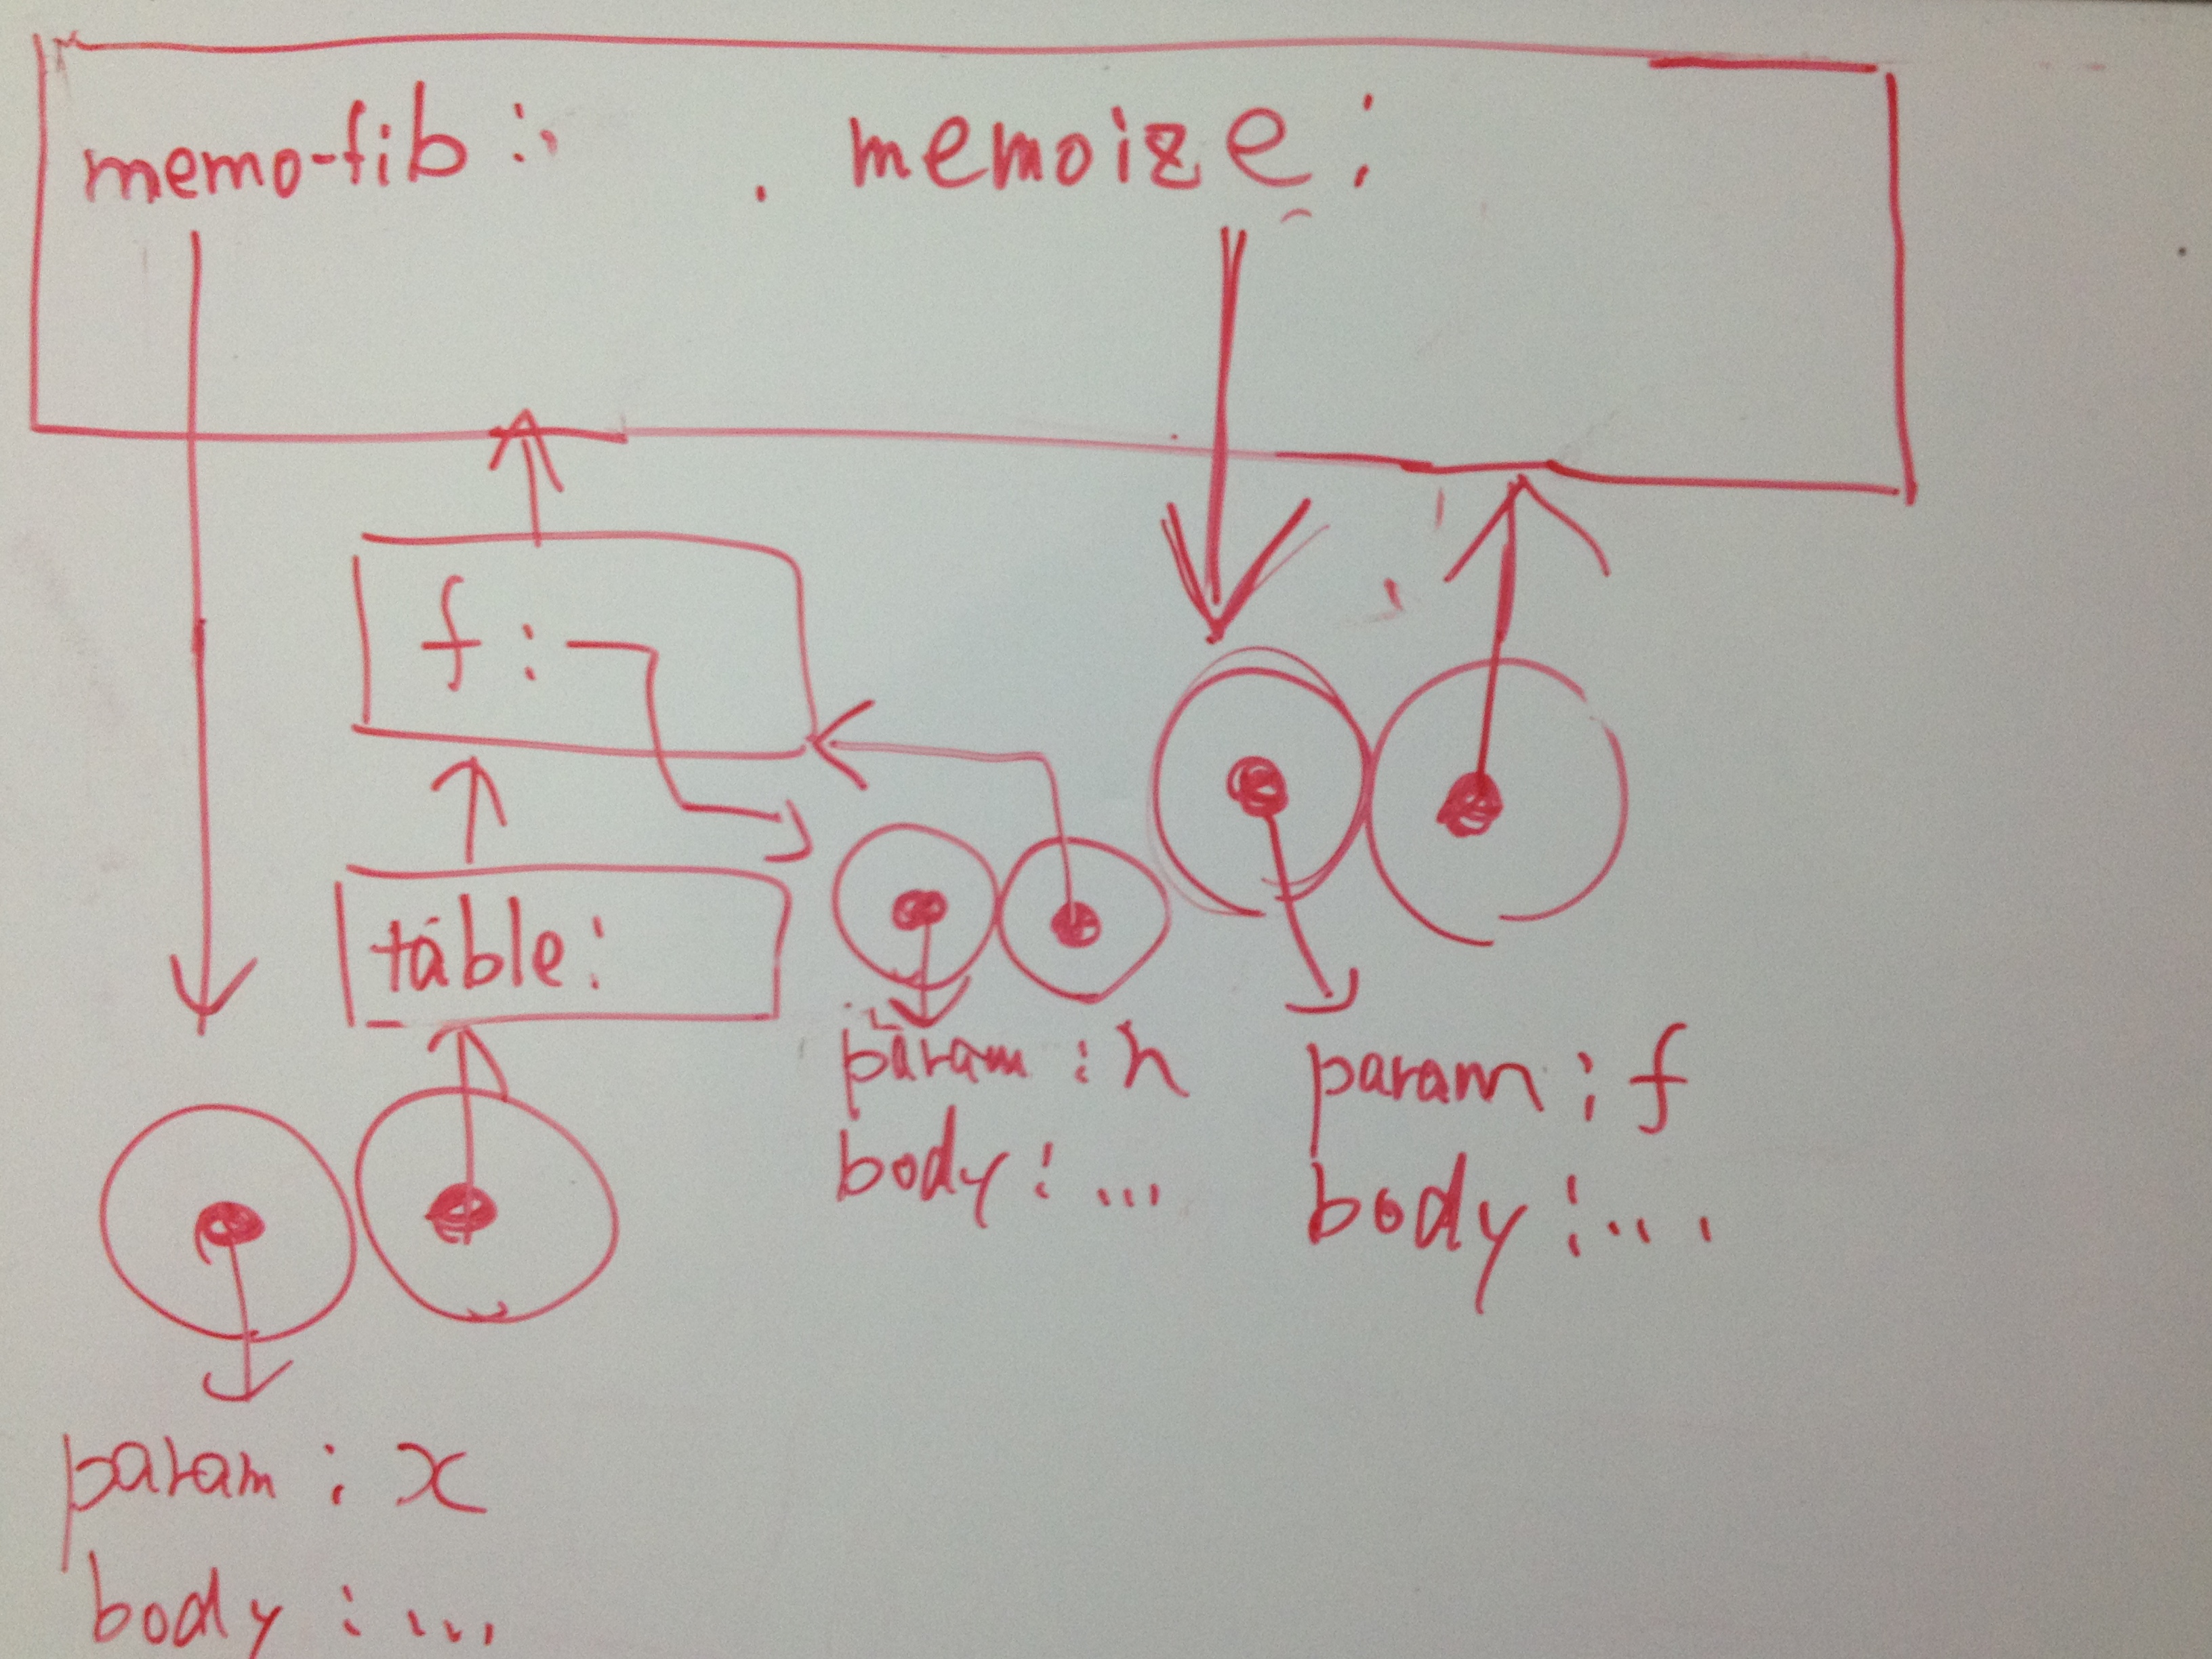 memo-fib : memoize :
f :
table :
param : n
body : ...
param : f
body : ...
param : x
body : ...